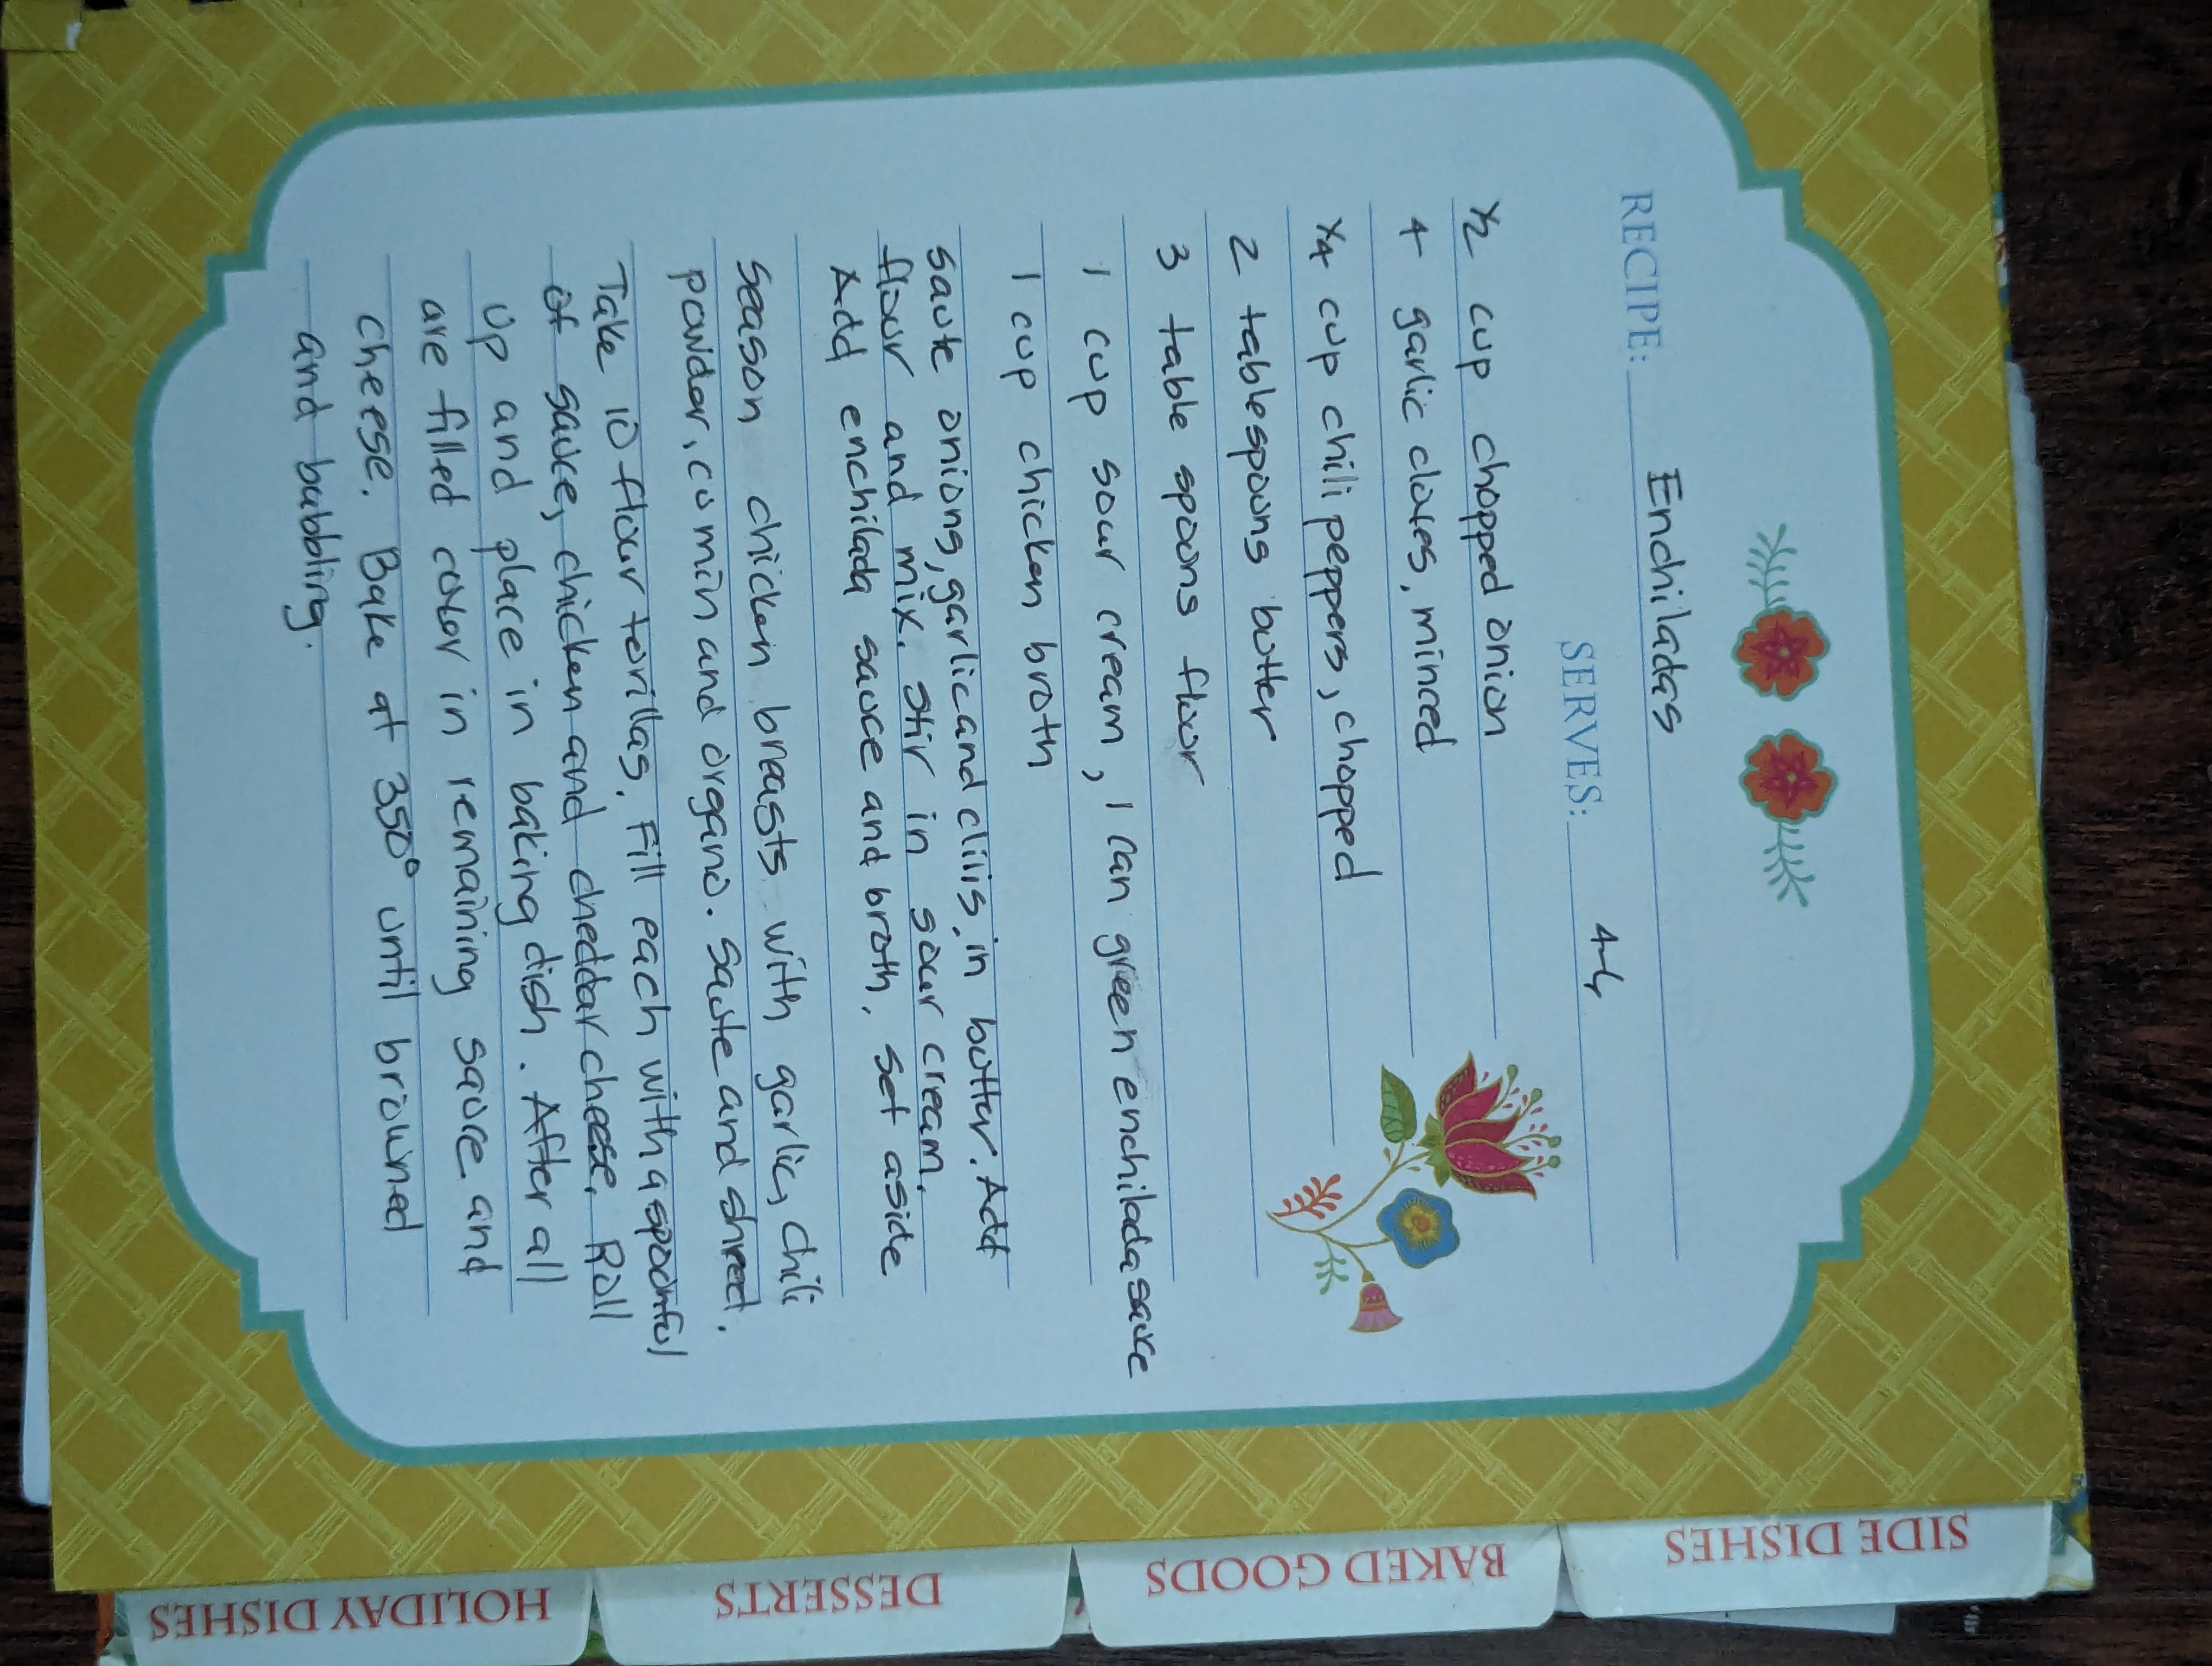 RECIPE: Enchiladas
SERVES: 4-6
1/2 cup chopped onion
4 garlic cloves, minced
1/4 cup chili peppers, chopped
2 tablespoons butter
3 table spoons flour
1 cup sour cream, 1 can green enchilada sauce
1 cup chicken broth
saute onions, garlic and cilis in butter. Add
flour and mix. Stir in sour cream.
Add enchilada sauce and broth. Set aside
Season chicken breasts with garlic, chili
powder, cumin and organo. Saute and shred.
Take 10 flour torillas. Fill each with a spoonful
of sauce, chicken and cheddar cheese. Roll
up and place in baking dish. After all
are filled cover in remaining sauce and
cheese. Bake at 350° until browned
and bubbling.
SIDE DISHES
BAKED GOODS
DESSERTS
HOLIDAY DISHES